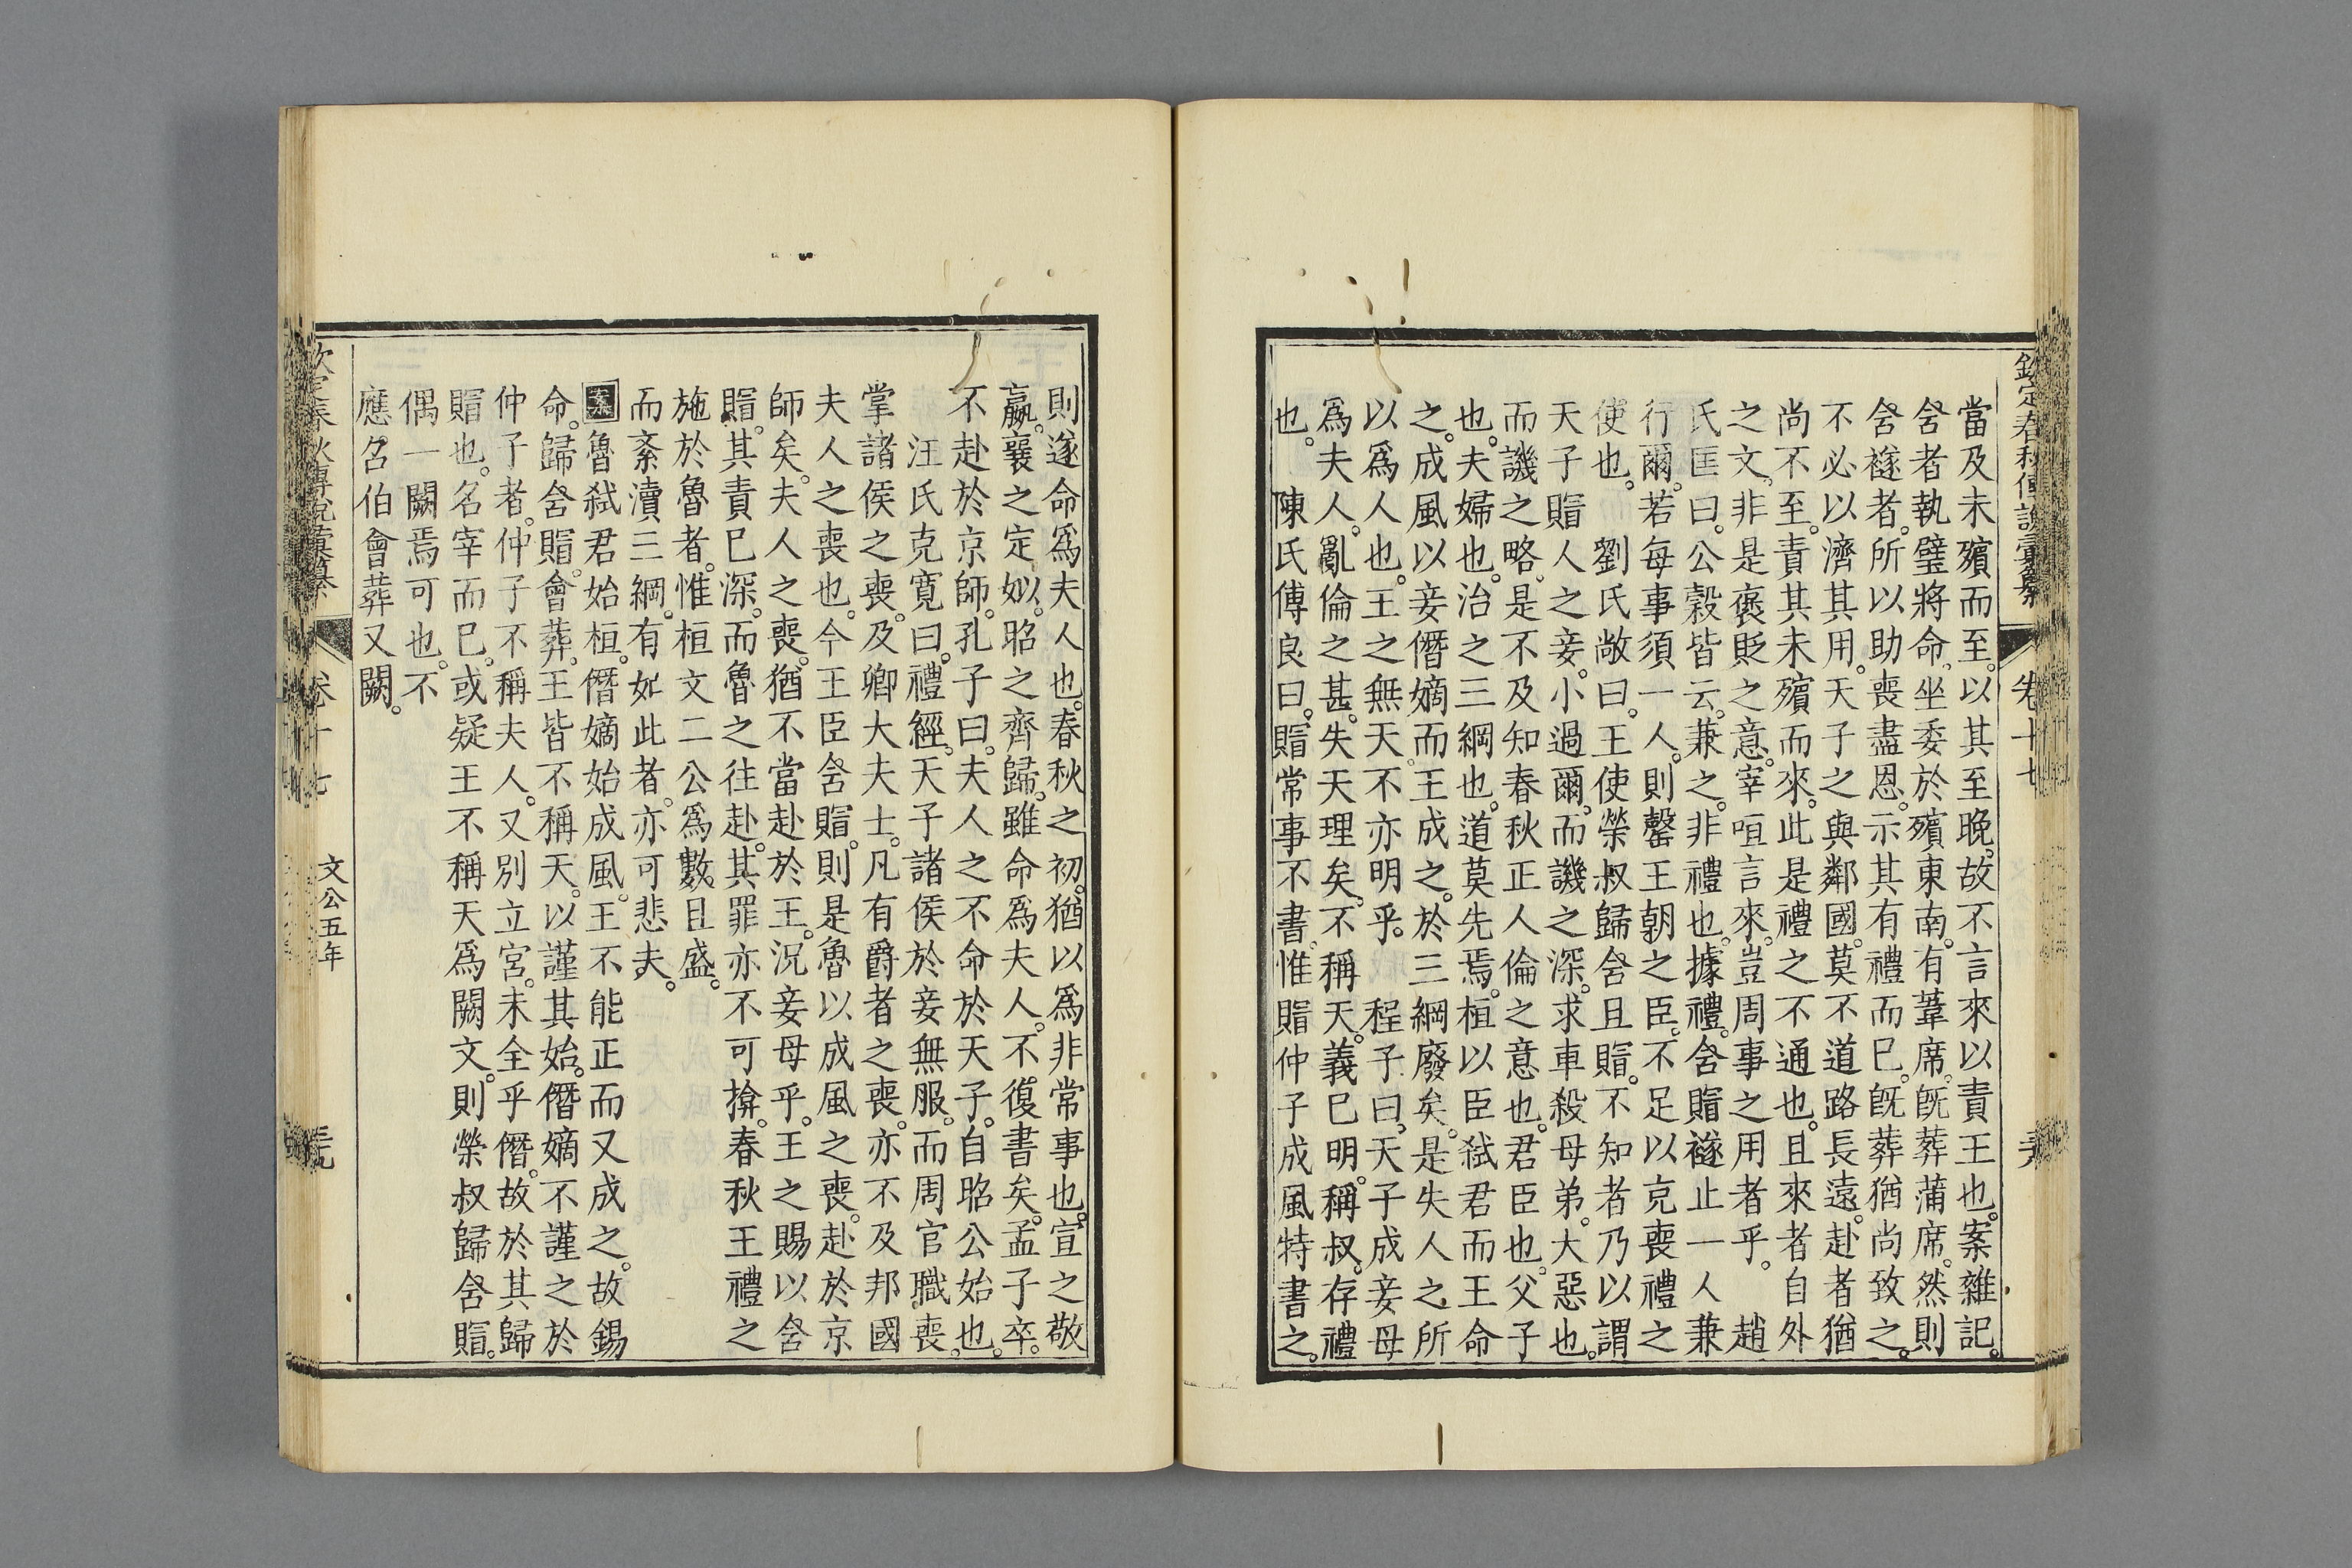 欽定春秋傳說彙纂 卷十七
當及未殯而至。以其至晚。故不言來以責王也。案雜記。
含者執璧將命。坐委於殯東南。有葦席。旣葬蒲席。然則
含襚者。所以助喪盡恩。示其有禮而已。旣葬猶尚致之。
不必以濟其用。天子之與鄰國。莫不道路長遠。赴者猶
尚不至。責其未殯而來。此是禮之不通也。且來者自外
之文。非是褒貶之意。宰咺言來。豈周事之用者乎。　趙
氏匡曰。公穀皆云。兼之。非禮也。據禮。含賵襚止一人兼
行爾。若每事須一人。則罄王朝之臣。不足以克喪禮之
使也。　劉氏敞曰。王使榮叔歸含且賵。不知者乃以謂
天子賵人之妾。小過爾。而譏之深。求車殺母弟。大惡也。
而譏之略。是不及知春秋正人倫之意也。君臣也。父子
也。夫婦也。治之三綱也。道莫先焉。桓以臣弒君而王命
之。成風以妾僭嫡而王成之。於三綱廢矣。是失人之所
以為人也。王之無天。不亦明乎。　程子曰。天子成妾母
爲夫人。亂倫之甚。失天理矣。不稱天。義已明。稱叔。存禮
也。　陳氏傅良曰。賵常事不書。惟賵仲子成風特書之。
則遂命爲夫人也。春秋之初。猶以爲非常事也。宣之敬
嬴。襄之定姒。昭之齊歸。雖命爲夫人。不復書矣。孟子卒。
不赴於京師。孔子曰。夫人之不命於天子。自昭公始也。
汪氏克寬曰。禮經。天子諸侯於妾無服。而周官職喪。
掌諸侯之喪。及卿大夫士。凡有爵者之喪。亦不及邦國
夫人之喪也。今王臣含賵。則是魯以成風之喪。赴於京
師矣。夫人之喪。猶不當赴於王。況妾母乎。王之賜以含
賵。其責已深。而魯之往赴。其罪亦不可揜。春秋王禮之
施於魯者。惟桓文二公爲數且盛。
而紊瀆三綱。有如此者。亦可悲夫。
案魯弒君始桓。僭嫡始成風。王不能正而又成之。故錫
命。歸含賵。會葬。王皆不稱天。以謹其始。僭嫡不謹之於
仲子者。仲子不稱夫人。又別立宮。未全乎僭。故於其歸
賵也。名宰而已。或疑王不稱天爲闕文。則榮叔歸含賵。
偶一闕焉可也。不
應召伯會葬又闕。
欽定春秋傳說彙纂 卷十七 文公五年